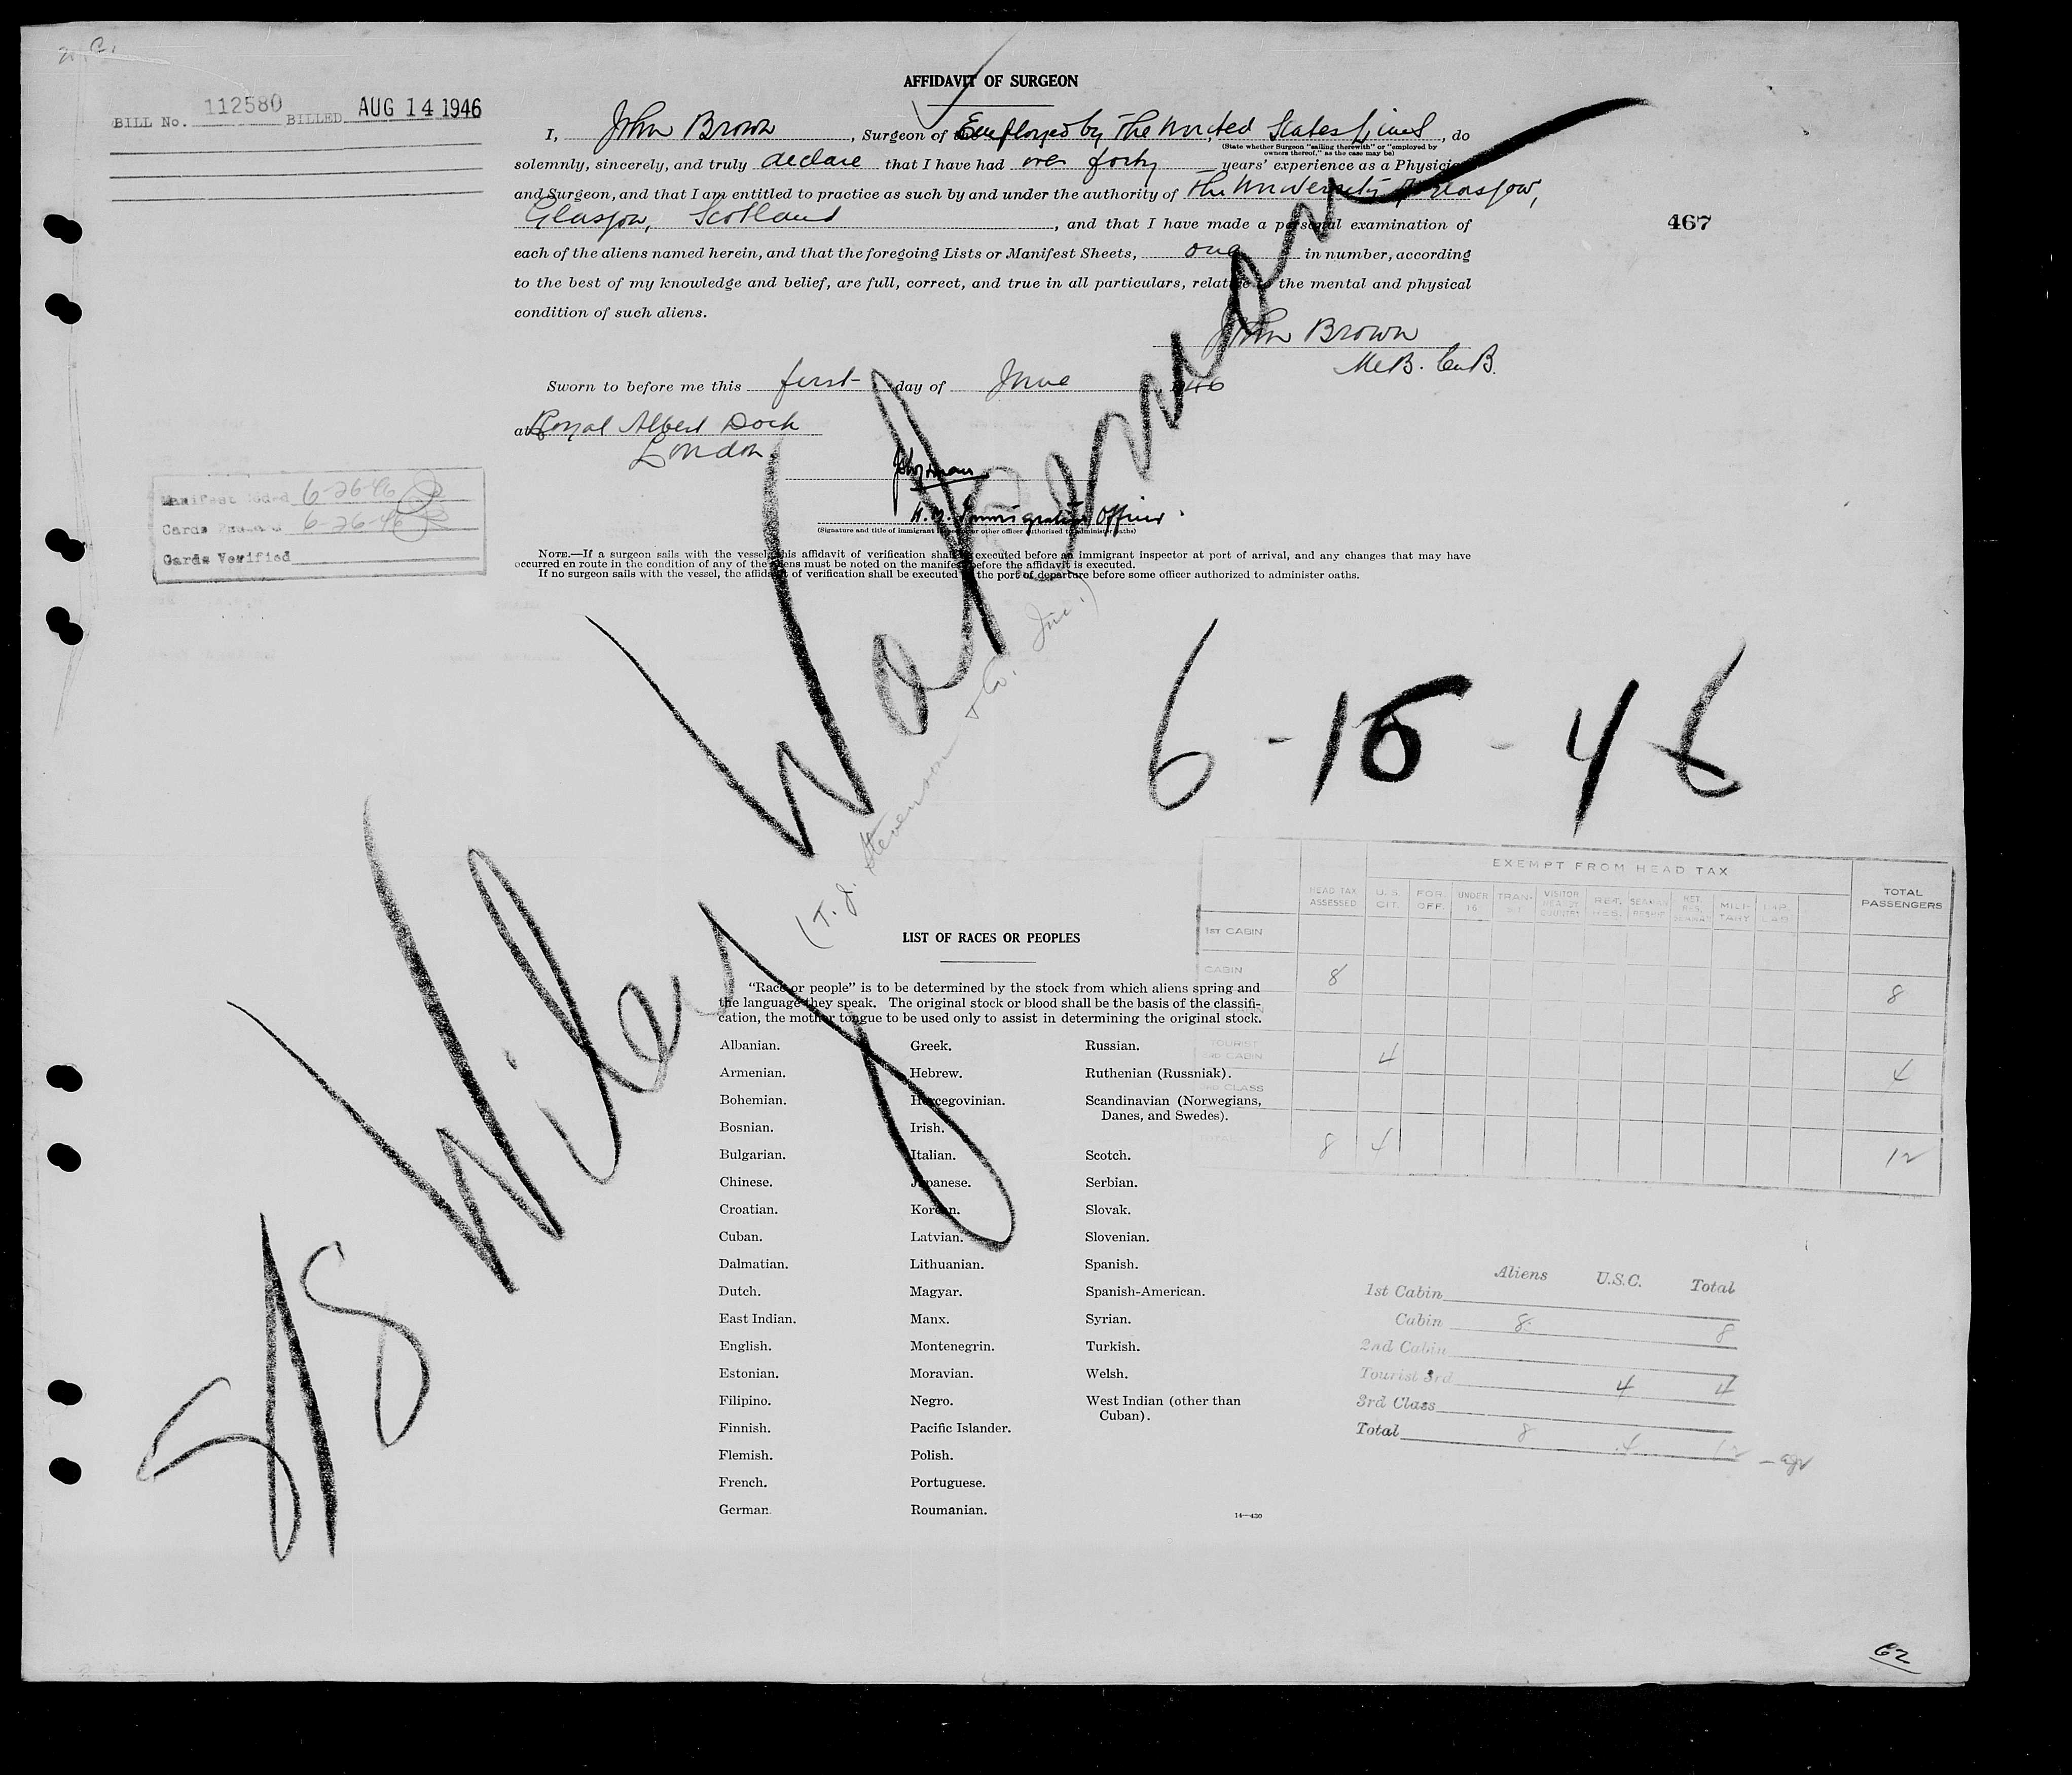 BILL No. 112580 BILLED AUG 14 1946
AFFIDAVIT OF SURGEON
I, John Brown, Surgeon of the Employed by The United States Lines, do
(State whether Surgeon "sailing therewith" or "employed by
owners thereof," as the case may be)
solemnly, sincerely, and truly declare that I have had over forty years' experience as a Physician
and Surgeon, and that I am entitled to practice as such by and under the authority of The University of Glasgow,
Glasgow, Scotland, and that I have made a personal examination of
467
each of the aliens named herein, and that the foregoing Lists or Manifest Sheets, one in number, according
to the best of my knowledge and belief, are full, correct, and true in all particulars, relative to the mental and physical
condition of such aliens.
John Brown
M.B. Ch.B.
Sworn to before me this first day of June 1946
at Royal Albert Dock
London
H.M. Immigration Officer.
(Signature and title of immigrant inspector or other officer authorized to administer oaths)
Manifest 6-26-46
Cards 6-26-46
Cards Verified
NOTE.—If a surgeon sails with the vessel, this affidavit of verification shall be executed before an immigrant inspector at port of arrival, and any changes that may have
occurred en route in the condition of any of the aliens must be noted on the manifest before the affidavit is executed.
If no surgeon sails with the vessel, the affidavit of verification shall be executed at the port of departure before some officer authorized to administer oaths.
S/S Wiley Wakeman
(T. J. Stevenson & Co. Inc.)
6-15-46
EXEMPT FROM HEAD TAX
HEAD TAX ASSESSED U.S. CIT. FOR. OFF. UNDER 16 TRAN- VISITOR COUNTRY MILI- TARY TOTAL PASSENGERS
1ST CABIN
CABIN 8 8
TOURIST
3RD CABIN 4 4
3RD CLASS
TOTAL 8 4 12
LIST OF RACES OR PEOPLES
"Race or people" is to be determined by the stock from which aliens spring and
the language they speak. The original stock or blood shall be the basis of the classifi-
cation, the mother tongue to be used only to assist in determining the original stock.
Albanian. Greek. Russian.
Armenian. Hebrew. Ruthenian (Russniak).
Bohemian. Hercegovinian. Scandinavian (Norwegians,
Danes, and Swedes).
Bosnian. Irish.
Bulgarian. Italian. Scotch.
Chinese. Japanese. Serbian.
Croatian. Korean. Slovak.
Cuban. Latvian. Slovenian.
Dalmatian. Lithuanian. Spanish.
Dutch. Magyar. Spanish-American.
East Indian. Manx. Syrian.
English. Montenegrin. Turkish.
Estonian. Moravian. Welsh.
Filipino. Negro. West Indian (other than
Cuban).
Finnish. Pacific Islander.
Flemish. Polish.
French. Portuguese.
German. Roumanian.
14—430
Aliens U.S.C. Total
1st Cabin
Cabin 8 8
2nd Cabin
Tourist 3rd 4 4
3rd Class
Total 8 4 12
62